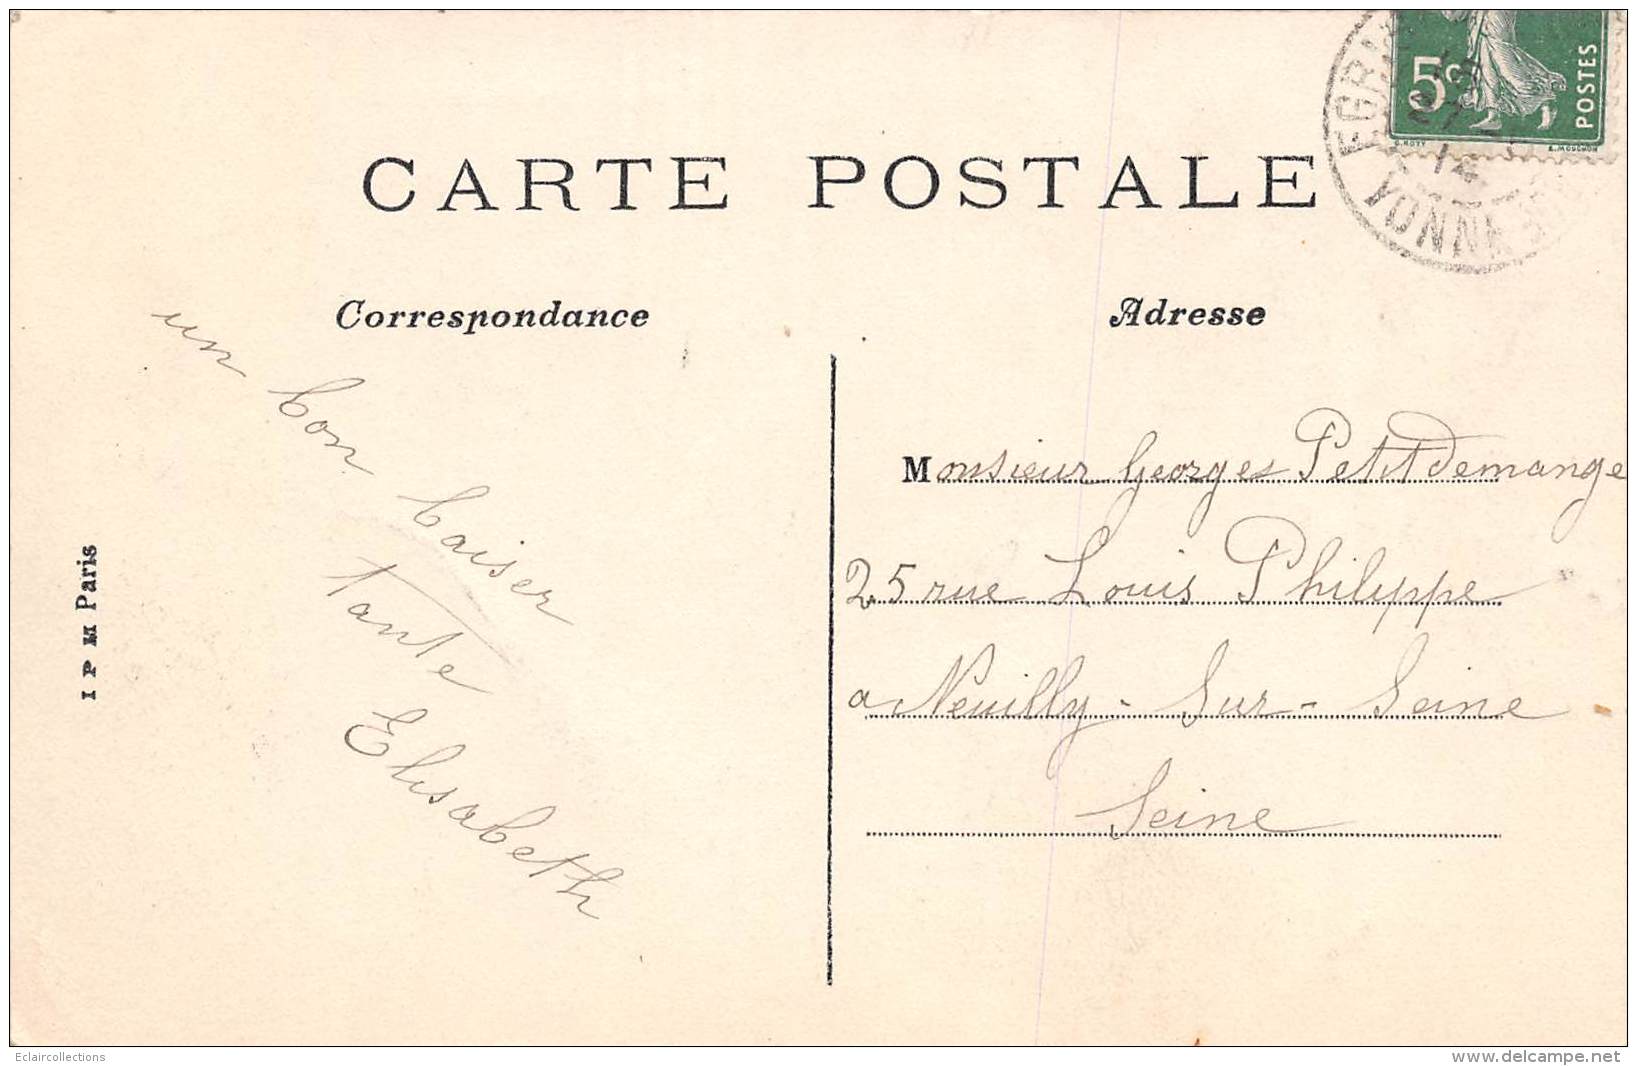 5c
POSTES
EGRI
YONNE
27
14
CARTE POSTALE
Correspondance
Adresse
un bon baiser
Tante
Elisabeth
Monsieur Georges Petitdemange
25 rue Louis Philippe
a Neuilly-Sur-Seine
Seine
I P M Paris
Eclaircollections
www.delcampe.net